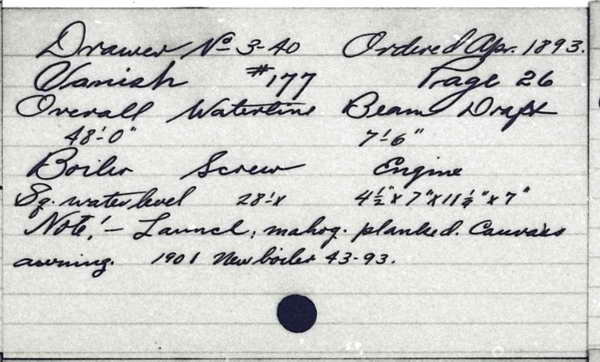 Drawer No 3-40 Ordered Apr. 1893.
Vanish #177 Page 26
Overall Waterline Beam Draft
48'-0" 7'-6"
Boiler Screw Engine
Sq. water level 28"x 4½"x 7"x 11½"x 7"
Note:- Launch; mahog. planked. Canvass
awning. 1901 New boiler 43-93.